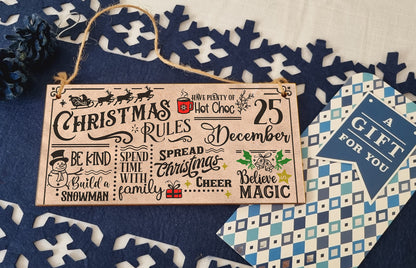 CHRISTMAS
RULES
HAVE PLENTY OF
Hot Choc
25
December
BE KIND
Build a
SNOWMAN
SPEND
TIME
WITH
family
SPREAD
Christmas
CHEER
Believe
MAGIC
A
GIFT
FOR YOU